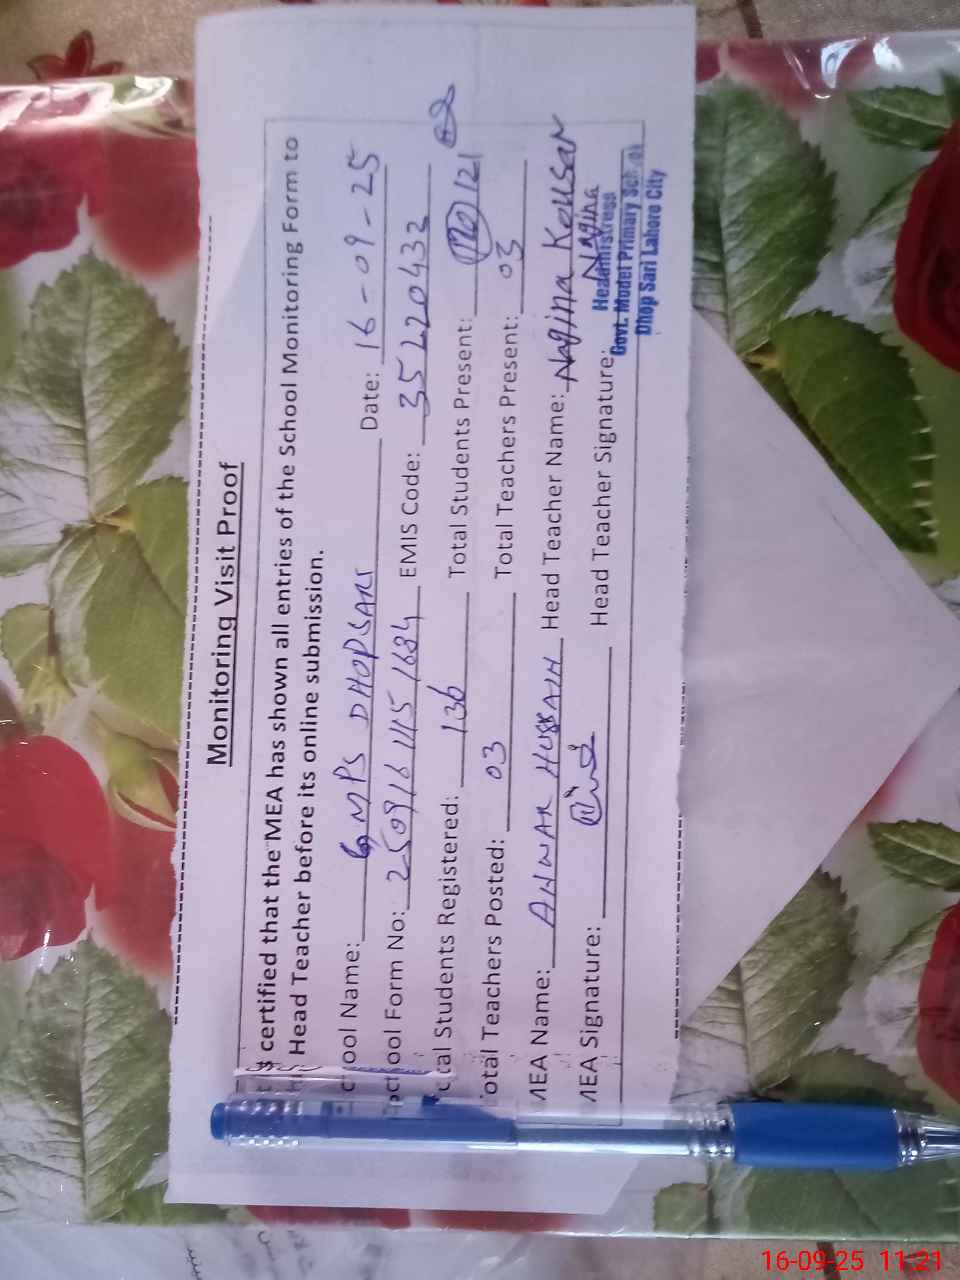 Monitoring Visit Proof
certified that the MEA has shown all entries of the School Monitoring Form to
Head Teacher before its online submission.
ool Name: GMPS DHOPSARI Date: 16-09-25
ool Form No: 250916 1115 1684 EMIS Code: 35220433
tal Students Registered: 136 Total Students Present: 121
otal Teachers Posted: 03 Total Teachers Present: 03
MEA Name: ANWAR HUSSAIN Head Teacher Name: Nagina Kousar
MEA Signature: Head Teacher Signature: Nagina
Headmistress
Govt. Model Primary School
Dhop Sari Lahore City
16-09-25 11:21